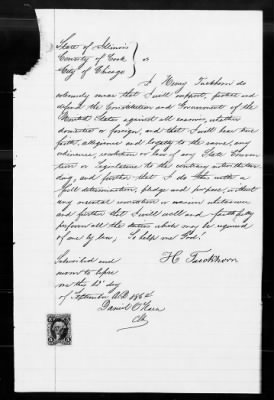 State of Illinois
County of Cook } ss
City of Chicago
I Henry do
solemnly swear that I will support, protect and
defend the Constitution and Government of the
United States against all enemies, whether
domestic or foreign, and that I will bear true
faith, allegiance and loyalty to the same, any
ordinance, resolution or law of any State Convention
or Legislature to the contrary notwithstanding,
and further that I do this with a
full determination, pledge and purpose, without
any mental reservation or evasion whatsoever
and further that I will well and faithfully
perform all the duties which may be required
of me by law; So help me God!
Subscribed and H
sworn to before
me this day
of September A.D. 186
Daniel O'Hara
Clk